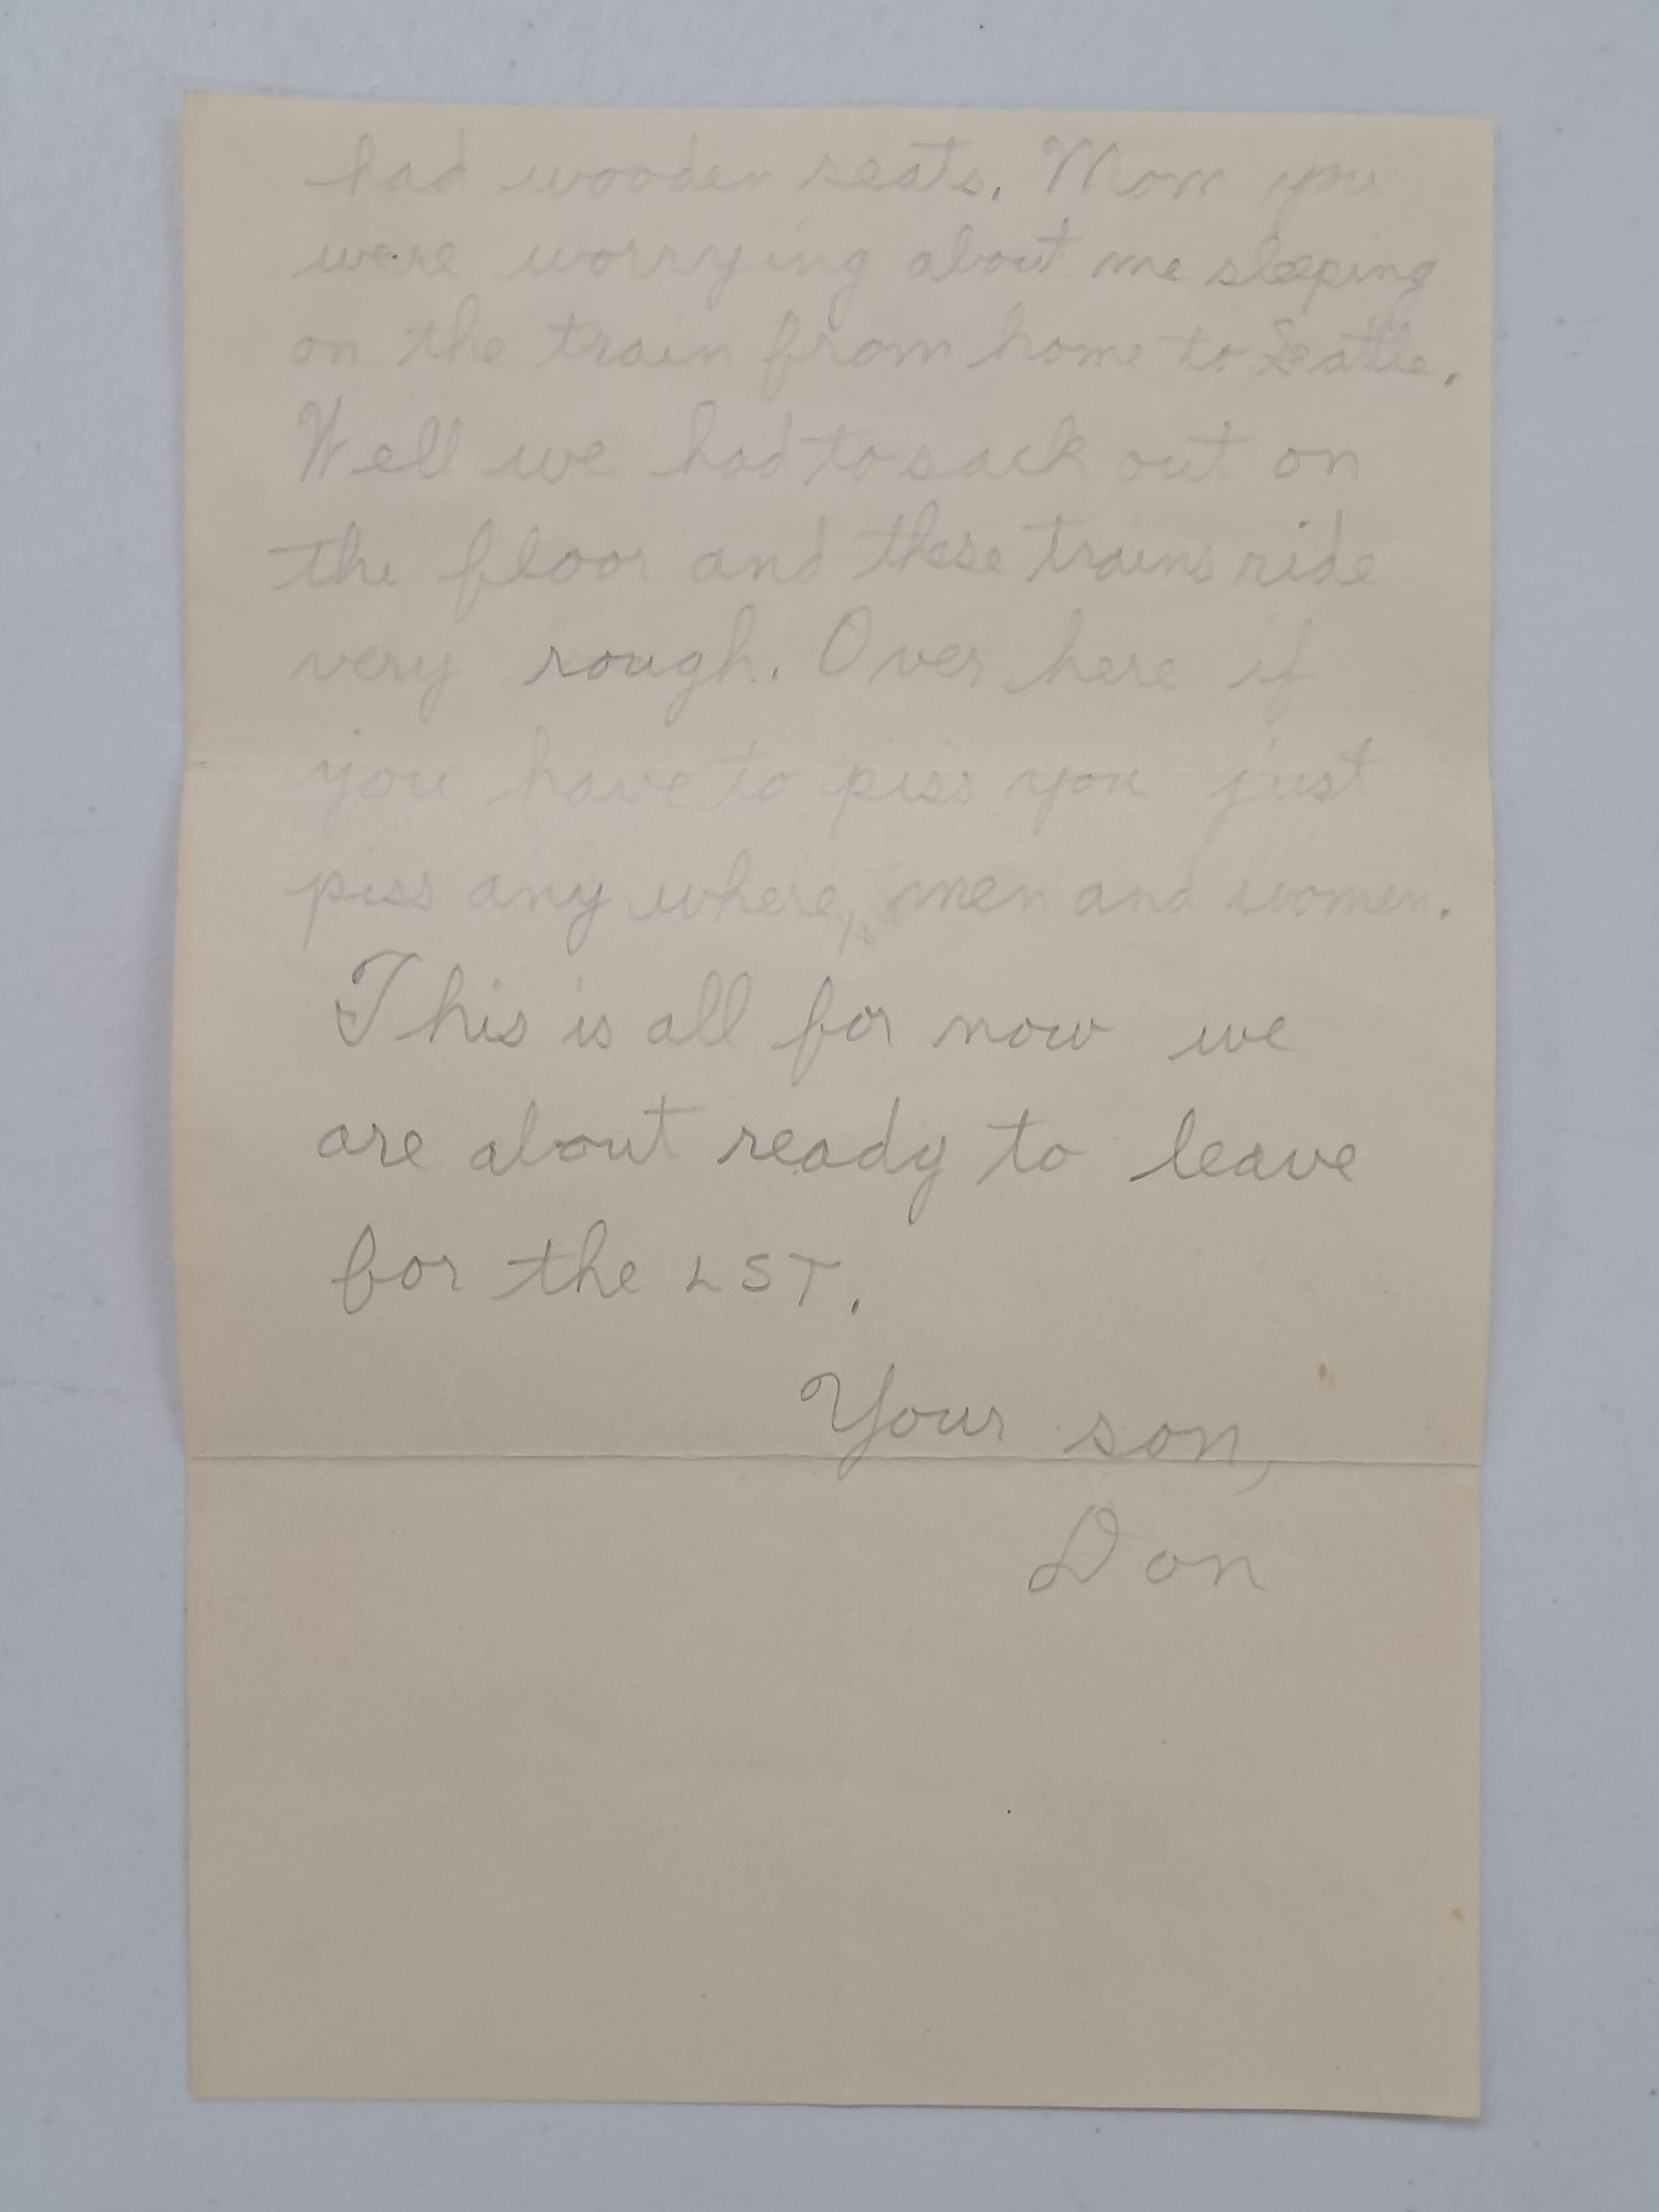 had wooden seats. Mom you
were worrying about me sleeping
on the train from home to Seattle.
Well we had to sack out on
the floor and these trains ride
very rough. Over here if
you have to piss you just
piss any where, men and women.
This is all for now we
are about ready to leave
for the LST.
Your son,
Don